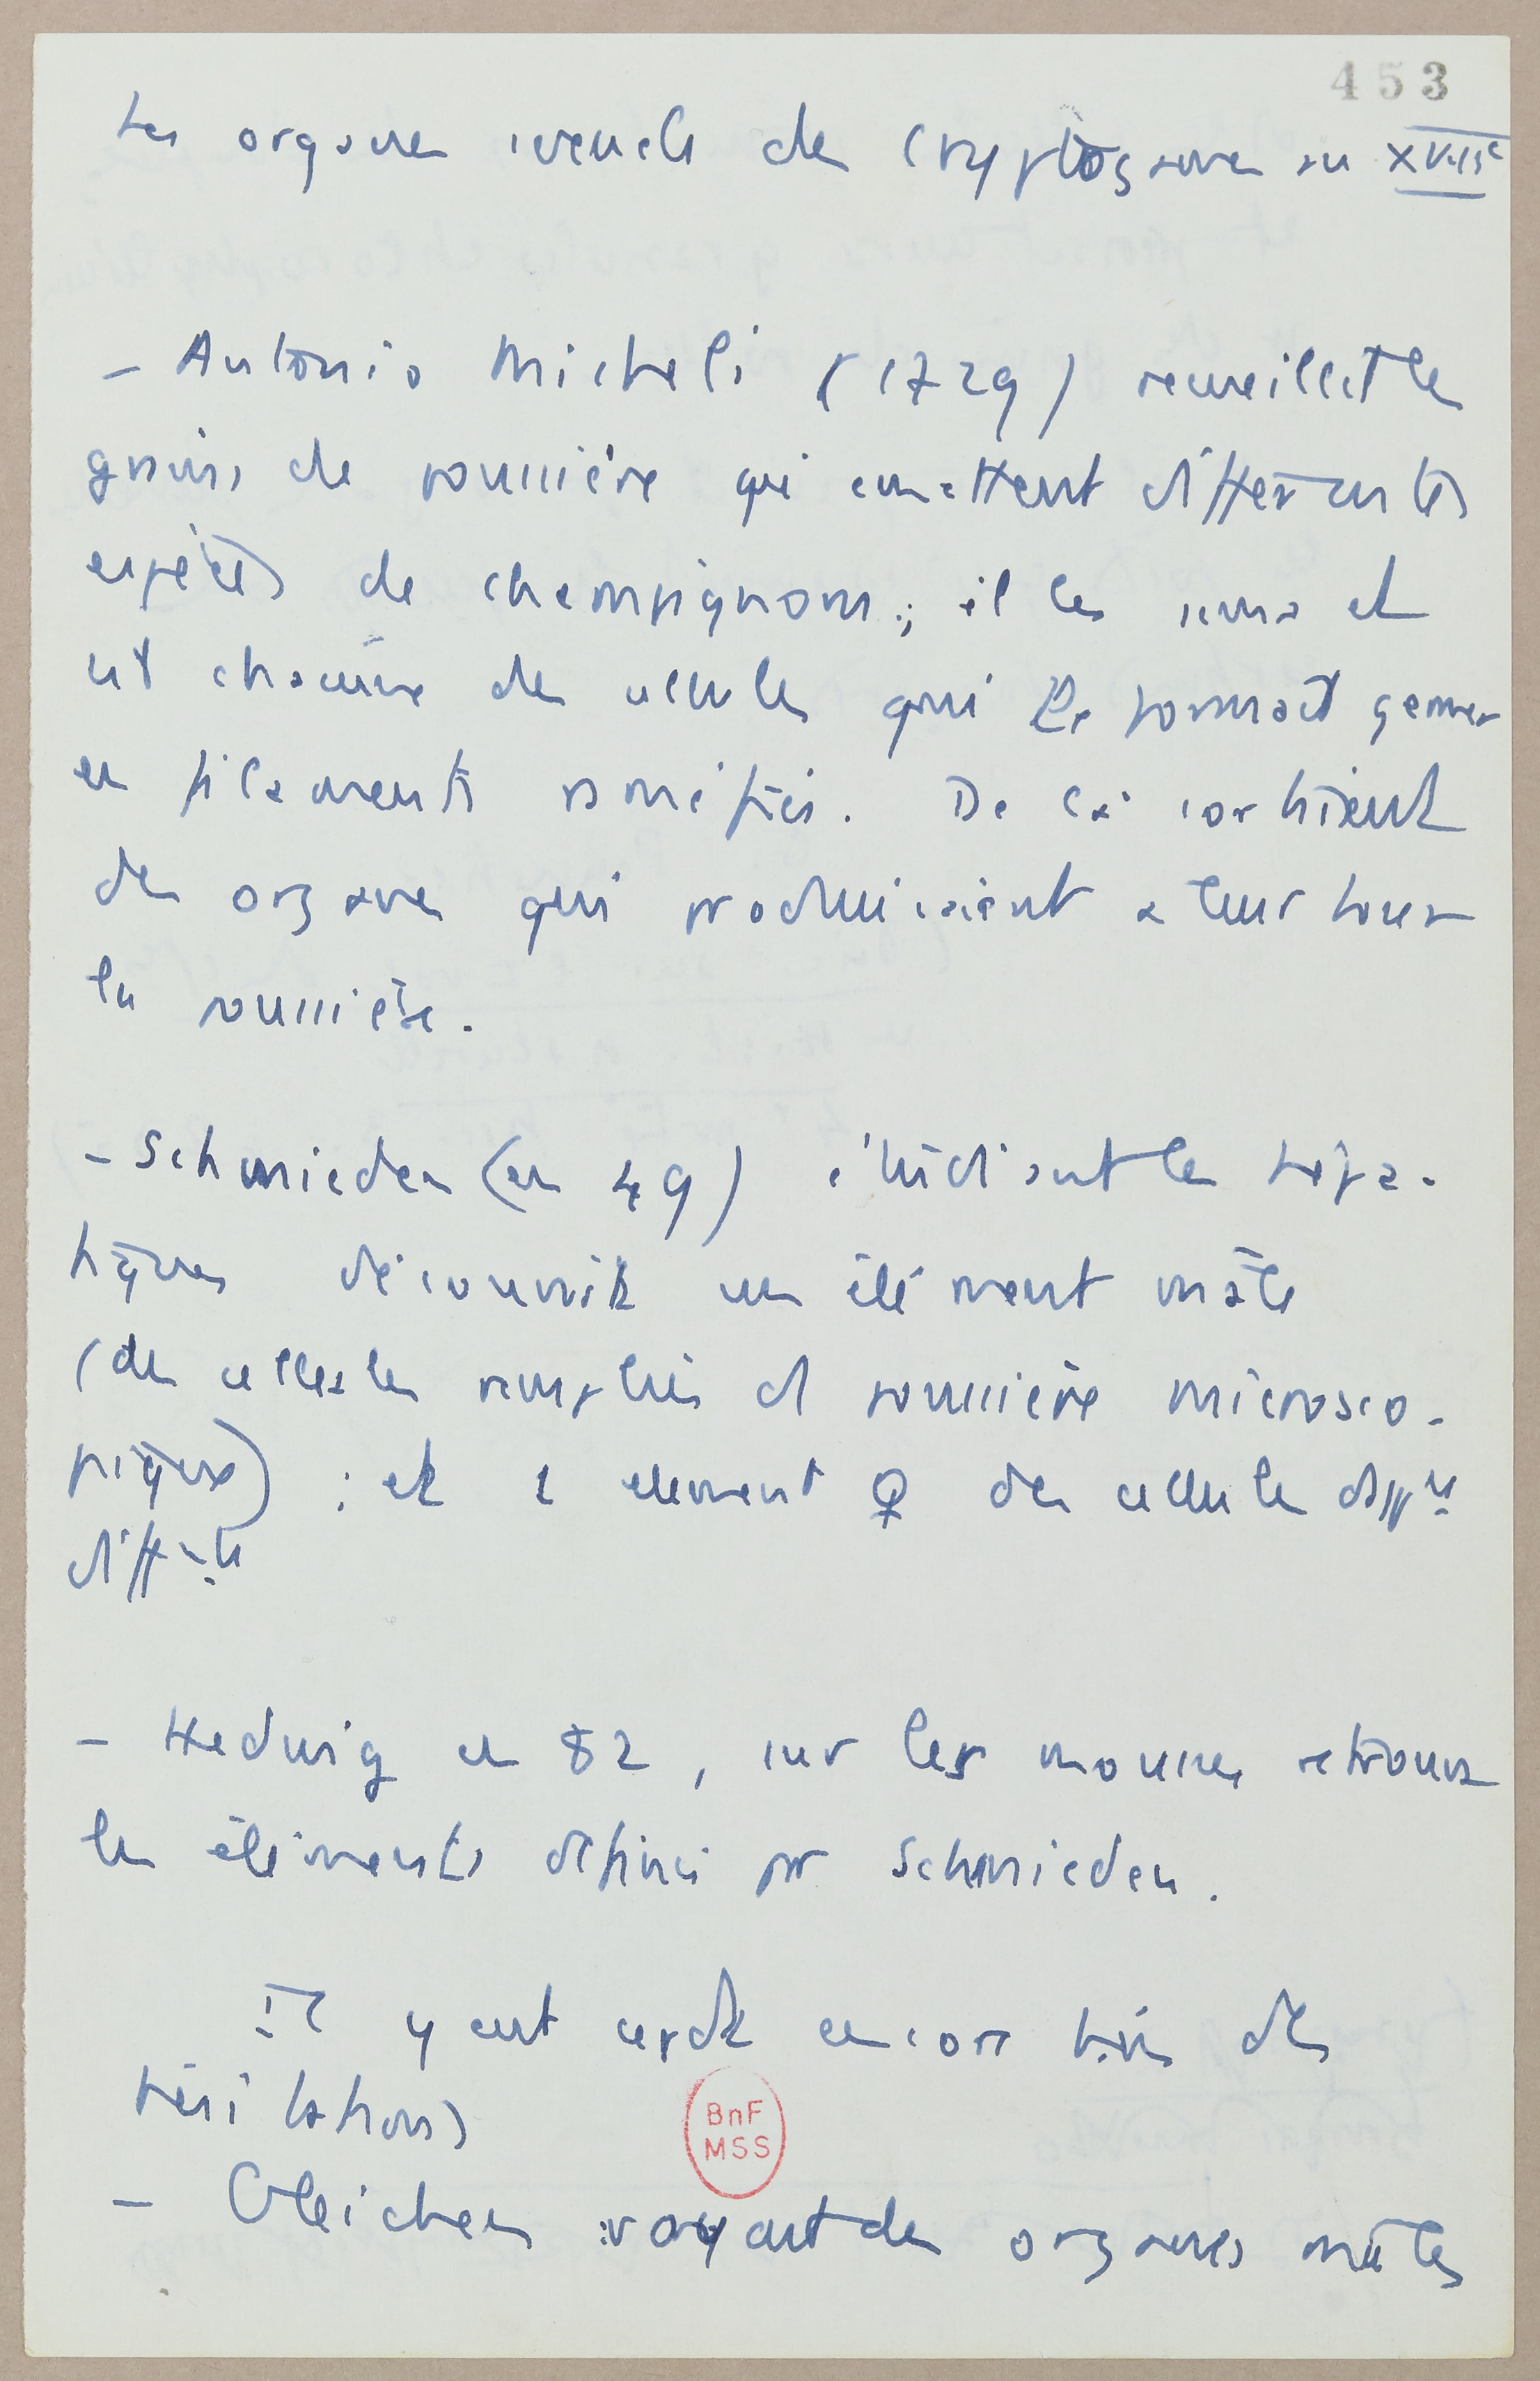 453
Les organes sexuels des cryptogames au XVIIIe
– Antonio Micheli (1729) recueillit les
grains de poussière qui émettent différentes
espèces de champignons ; il les sema et
vit chacune des cellules qui la formait germer
en filaments ramifiés. De là sortaient
des organes qui produisaient à leur tour
la poussière.
– Schmieden (en 49) étudiant les hépa-
tiques découvrit un élément mâle
(des cellules remplies de poussière microsco-
piques) : et l element ♀ des cellules
– Hedwig en 82, sur les mousses retrouve
les éléments définis par Schmieden.
Il y eut cepdt encore bien des
hésitations
– Gleichen voyant des organes mâles
BnF
MSS